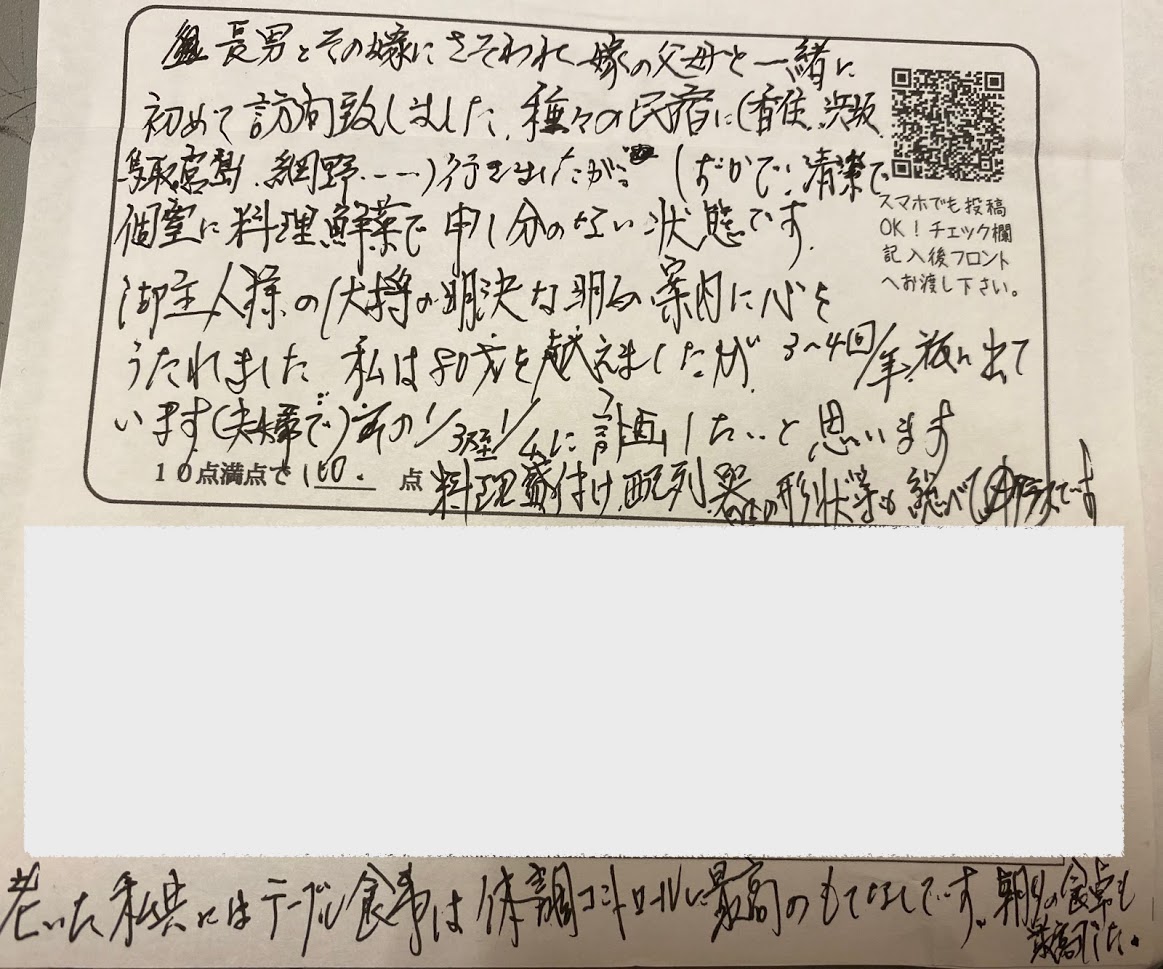 長男とその嫁にさそわれ嫁の父母と一緒に
初めて訪問致しました、種々の民宿に(香住、浜坂、
鳥取、宮島、網野、---)行きましたが しずかで、清潔で
個室に料理鮮菜で申し分のない状態です。
御主人様の(大将の明決な明るい案内に心を
うたれました 私は80才を越えましたが、3~4回/年、旅に出て
います(夫婦で)次の 1/3 1/4に計画したいと思います
10点満点で 100. 点
料理盛付け、配列、器の形状等も総べて
スマホでも投稿
OK!チェック欄
記入後フロント
へお渡し下さい。
老いた私共にはテーブル食事は体調コントロールに最高のもてなしです。朝の食卓も
最高でした。